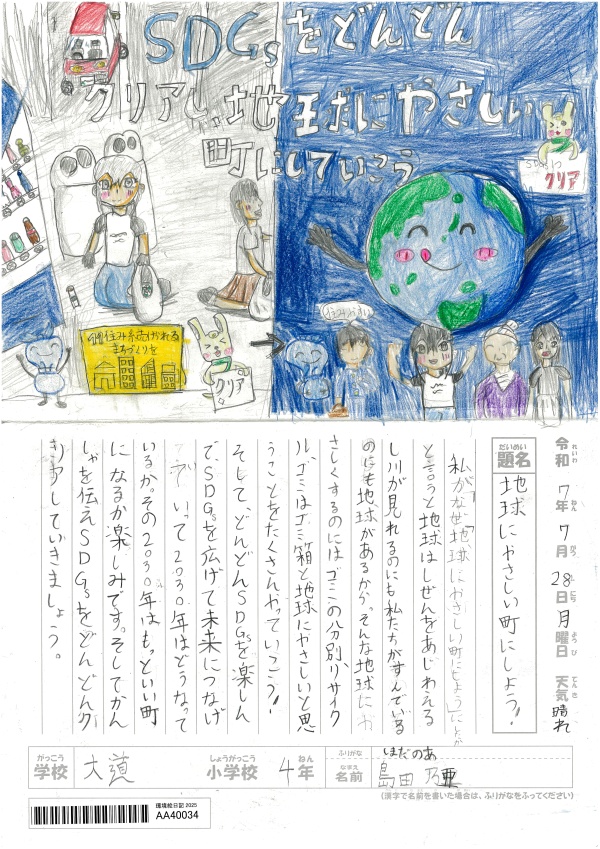 SDGsをどんどん
クリアし、地球にやさしい
町にしていこう
SDGsに
クリア
住み続けられる
まちづくりを
クリア
令和7年7月28日月曜日 天気 晴れ
れいわ ねん がつ にち ようび てんき
だいめい
題名
地球にやさしい町にしよう!
私がなぜ「地球にやさしい町にしよう」にしたか
と言うと地球はしぜんをあじわえる
し川が見れるのにも私たちがすんでいる
のにも地球があるから。そんな地球にや
さしくするのにはゴミの分別、リサイク
ル、ゴミはゴミ箱と地球にやさしいと思
うことをたくさんやっていこう!
そして、どんどんSDGsを楽しん
で、SDGsを広げて未来につなげ
ていって2030年はどうなって
いるか。その2030年はもっといい町
になるか楽しみです。そしてかん
しゃを伝えSDGsをどんどんク
リアしていきましょう。
がっこう しょうがっこう ねん
学校 大道 小学校 4年
ふりがな しまだ のあ
なまえ
名前 島田 乃亜
(漢字で名前を書いた場合は、ふりがなをふってください)
環境絵日記 2025
AA40034